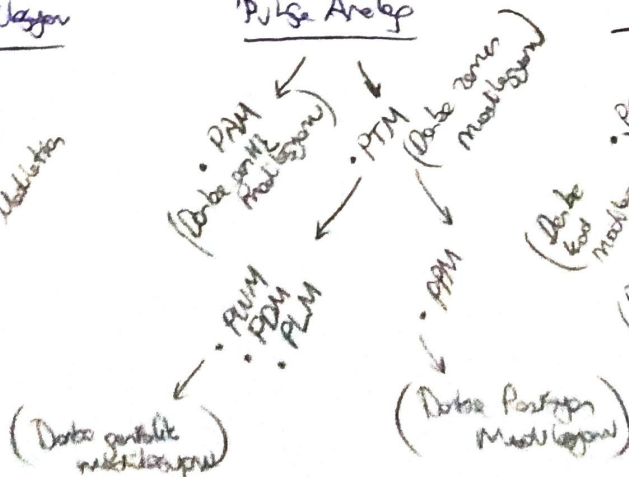 Pulse Analog
• PAM
(Darbe genlik
modülasyonu)
• PTM
(Darbe zaman
modülasyonu)
(Darbe
kod
Modulation
• PWM
• PDM
• PLM
• PPM
(Darbe genişlik
modülasyonu)
(Darbe Pozisyon
Modülasyonu)